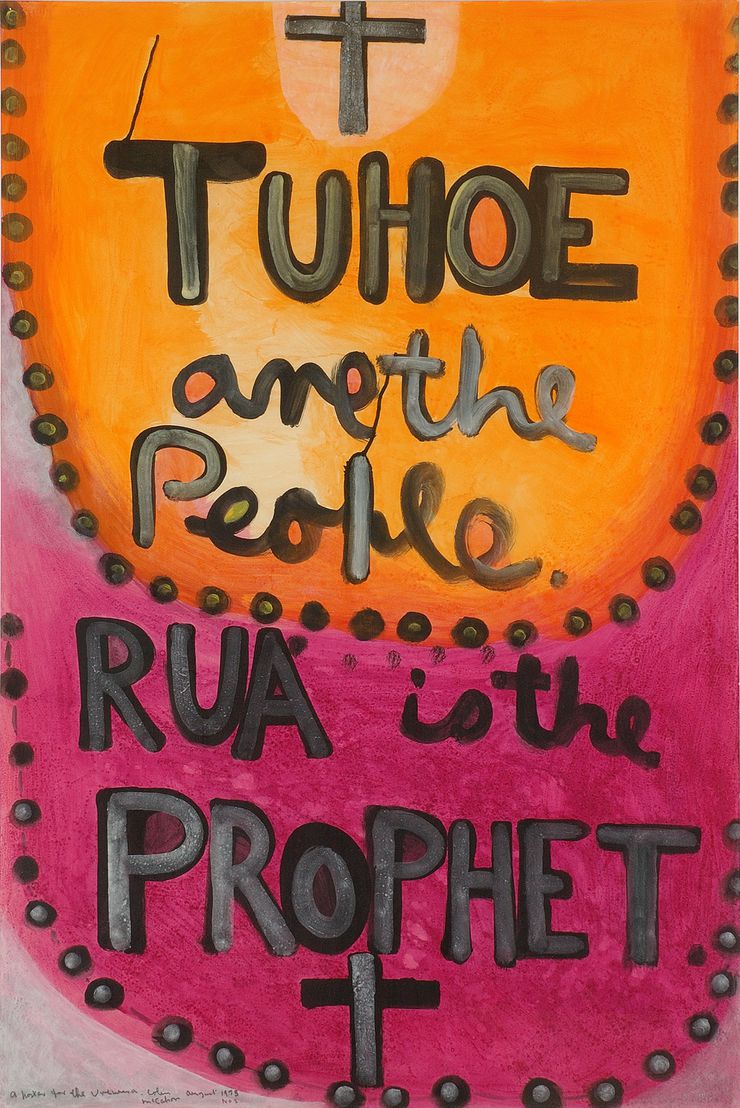 TUHOE
are the
People.
RUA is the
PROPHET
a poster for the Urewera. Colin august 1975
McCahon No 5